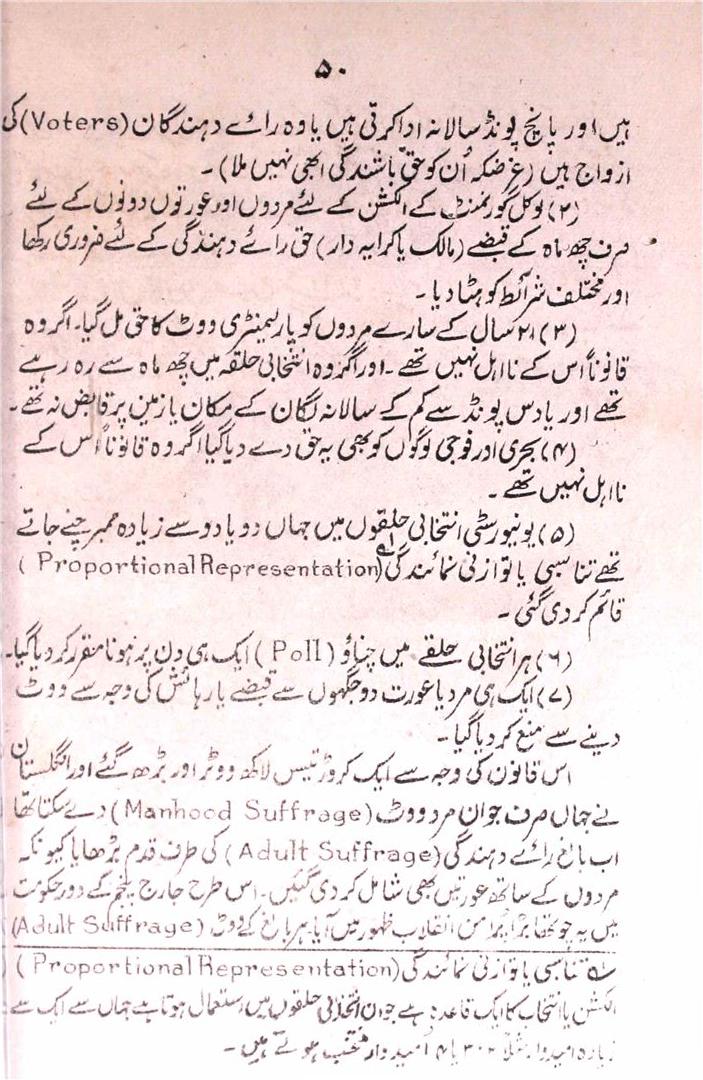 ۵۰
ہیں اور پانچ پونڈ سالانہ ادا کرتی ہیں یا وہ رائے دہندگان (Voters) کی
ازواج ہیں (غرضکہ اُن کو حقِ باشندگی ابھی نہیں ملا)۔
(۲) لوکل گورنمنٹ کے الکشن کے لئے مردوں اور عورتوں دونوں کے لئے
صرف چھ ماہ کے قبضے (مالک یا کرایہ دار) حق رائے دہندگی کے لئے ضروری رکھا
اور مختلف شرائط کو ہٹا دیا۔
(۳) ۲۱ سال کے سارے مردوں کو پارلیمنٹری ووٹ کا حق مل گیا۔ اگر وہ
قانوناً اس کے نااہل نہیں تھے۔ اور اگر وہ انتخابی حلقہ میں چھ ماہ سے رہ رہے
تھے اور یا دس پونڈ سے کم کے سالانہ لگان کے مکان یا زمین پر قابض نہ تھے۔
(۴) بحری اور فوجی لوگوں کو بھی یہ حق دے دیا گیا اگر وہ قانوناً اس کے
نااہل نہیں تھے۔
(۵) یونیورسٹی انتخابی حلقوں میں جہاں دو یا دو سے زیادہ ممبر چنے جاتے
تھے تناسبی یا توازنی نمائندگی (Proportional Representation)
قائم کر دی گئی۔
(۶) ہر انتخابی حلقے میں چناؤ (Poll) ایک ہی دن پر ہونا مقرر کر دیا گیا۔
(۷) ایک ہی مرد یا عورت دو جگہوں سے قبضے یا رہائش کی وجہ سے ووٹ
دینے سے منع کر دیا گیا۔
اس قانون کی وجہ سے ایک کروڑ تیس لاکھ ووٹر اور بڑھ گئے اور انگلستان
نے جہاں صرف جوان مرد ووٹ (Manhood Suffrage) دے سکتا تھا
اب بالغ رائے دہندگی (Adult Suffrage) کی طرف قدم بڑھایا کیونکہ
مردوں کے ساتھ عورتیں بھی شامل کر دی گئیں۔ اس طرح جارج پنجم کے دور حکومت
میں یہ چوتھا بڑا پُرامن انقلاب ظہور میں آیا۔ ہر بالغ کے ووٹ (Adult Suffrage)
۱؎ تناسبی یا توازنی نمائندگی (Proportional Representation)
الکشن یا انتخاب کا ایک قاعدہ ہے جو ان انتخابی حلقوں میں استعمال ہوتا ہے جہاں سے ایک سے
زیادہ امیدوار مثلاً ۲، ۳ یا ۴ امیدوار منتخب ہوتے ہیں۔